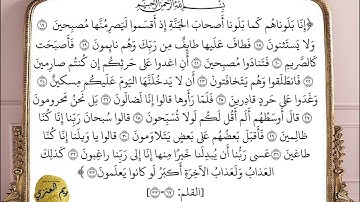 بسم الله الرحمن الرحيم
﴿إِنَّا بَلَوْنَاهُمْ كَمَا بَلَوْنَا أَصْحَابَ الْجَنَّةِ إِذْ أَقْسَمُوا لَيَصْرِمُنَّهَا مُصْبِحِينَ ﴿١٧﴾
وَلَا يَسْتَثْنُونَ ﴿١٨﴾ فَطَافَ عَلَيْهَا طَائِفٌ مِن رَبِّكَ وَهُمْ نَائِمُونَ ﴿١٩﴾ فَأَصْبَحَتْ
كَالصَّرِيمِ ﴿٢٠﴾ فَتَنَادَوْا مُصْبِحِينَ ﴿٢١﴾ أَنِ اغْدُوا عَلَى حَرْثِكُمْ إِن كُنتُمْ صَارِمِينَ
﴿٢٢﴾ فَانطَلَقُوا وَهُمْ يَتَخَافَتُونَ ﴿٢٣﴾ أَن لَا يَدْخُلَنَّهَا الْيَوْمَ عَلَيْكُم مِسْكِينٌ ﴿٢٤﴾
وَغَدَوْا عَلَى حَرْدٍ قَادِرِينَ ﴿٢٥﴾ فَلَمَّا رَأَوْهَا قَالُوا إِنَّا لَضَالُّونَ ﴿٢٦﴾ بَلْ نَحْنُ مَحْرُومُونَ
﴿٢٧﴾ قَالَ أَوْسَطُهُمْ أَلَمْ أَقُل لَكُمْ لَوْلَا تُسَبِّحُونَ ﴿٢٨﴾ قَالُوا سُبْحَانَ رَبِّنَا إِنَّا كُنَّا
ظَالِمِينَ ﴿٢٩﴾ فَأَقْبَلَ بَعْضُهُمْ عَلَى بَعْضٍ يَتَلَاوَمُونَ ﴿٣٠﴾ قَالُوا يَا وَيْلَنَا إِنَّا كُنَّا
طَاغِينَ ﴿٣١﴾ عَسَى رَبُّنَا أَن يُبْدِلَنَا خَيْرًا مِنْهَا إِنَّا إِلَى رَبِّنَا رَاغِبُونَ ﴿٣٢﴾ كَذَلِكَ
الْعَذَابُ وَلَعَذَابُ الْآخِرَةِ أَكْبَرُ لَوْ كَانُوا يَعْلَمُونَ﴾
[القلم: ١٧-٣٣]